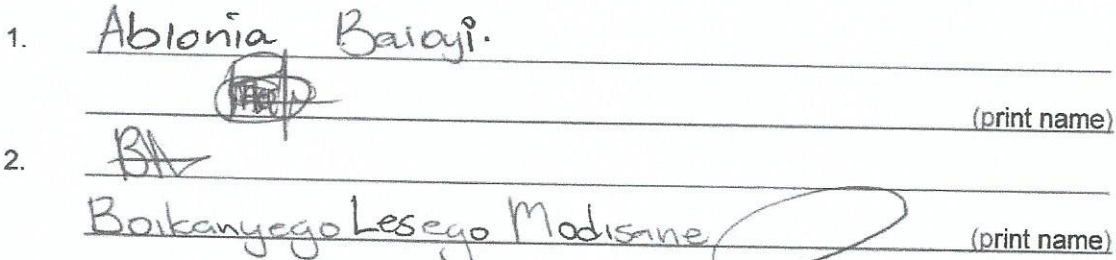 1. Ablonia Baloyi.
(print name)
2.
Boikanyego Lesego Modisane (print name)